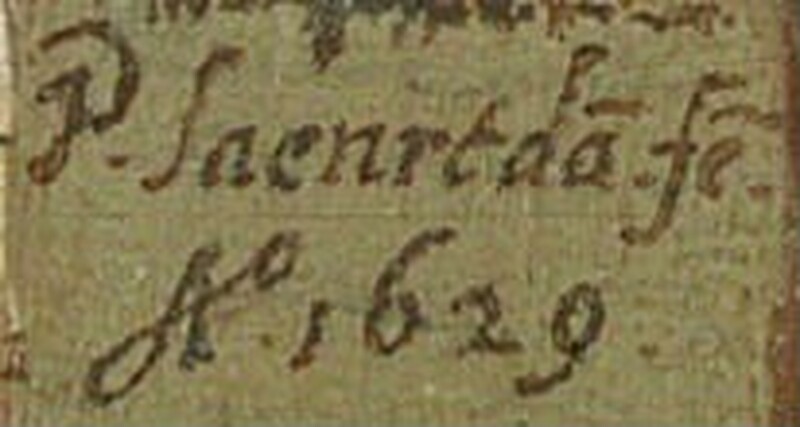 P. Saenrtdã. fe.
Aº. 1629.